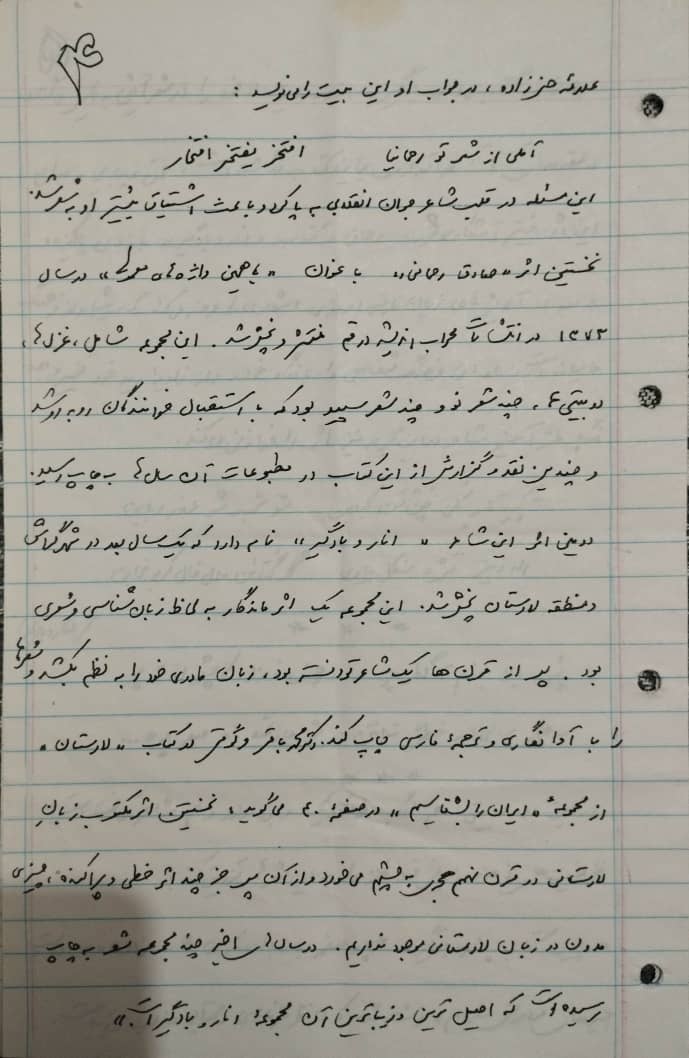 ۴
علامه حسن زاده، در جواب او این بیت را می‌نویسد :
آملی از شعر تو رحمانیا     افتخر یفتخر افتخار
این مسئله در قلب شاعر جوان انقلابی به پا کرد و باعث اشتیاق بیشتر او به شعر شد.
نخستین اثر «صادق رحمانی» با عنوان «با همین واژه‌های معمولی» در سال
۱۳۷۳ در انتشارات محراب اندیشه در قم منتشر و پخش شد. این مجموعه شامل، غزل‌ها،
دوبیتی‌ها، چند شعر نو و چند شعر سپید بود که با استقبال خوانندگان روبه‌رو شد
و چندین نقد و گزارش از این کتاب در مطبوعات آن سال‌ها به چاپ رسید.
دومین اثر این شاعر «انار و بادگیر» نام دارد که یک سال بعد در شهر گراش
و منطقه لارستان پخش شد. این مجموعه یک اثر ماندگار به لحاظ زبان شناسی و شعری
بود. پس از قرن ها یک شاعر توانسته بود، زبان مادری خود را به نظم بکشد و شعرها
را با آوانگاری و ترجمهٔ فارسی چاپ کند. دکتر محمد باقر وثوقی در کتاب «لارستان»
از مجموعهٔ «ایران را بشناسیم» در صفحهٔ ۴۰ می‌گوید، نخستین اثر مکتوب زبانِ
لارستانی در قرن نهم هجری به چشم می‌خورد و از آن پس جز چند اثر خطی و پراکنده، چیزی
مدون در زبان لارستانی موجود نداریم. در سال‌های اخیر چند مجموعه شعر به چاپ
رسیده است که اصیل ترین و زیباترین آن مجموعهٔ انار و بادگیر است.»